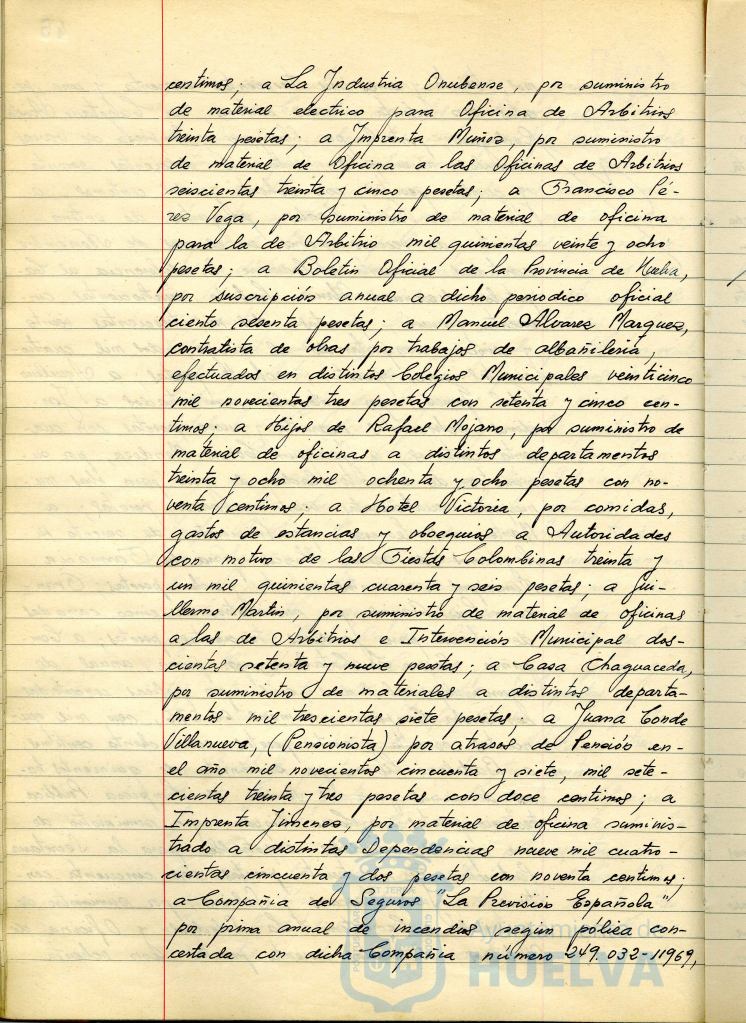 centimos; a La Industria Onubense, por suministro
de material electrico para Oficina de Arbitrios
treinta pesetas; a Imprenta Muñoz, por suministro
de material de Oficina a las Oficinas de Arbitrios
seiscientas treinta y cinco pesetas; a Francisco Pé-
rez Vega, por suministro de material de oficina
para la de Arbitrio mil quinientas veinte y ocho
pesetas; a Boletin Oficial de la Provincia de Huelva,
por suscripción anual a dicho periodico oficial
ciento sesenta pesetas; a Manuel Alvarez Marquez,
contratista de obras por trabajos de albañileria,
efectuados en distintos Colegios Municipales veinticinco
mil novecientas tres pesetas con setenta y cinco cen-
timos; a Hijos de Rafael Mojarro, por suministro de
material de oficinas a distintos departamentos
treinta y ocho mil ochenta y ocho pesetas con no-
venta centimos; a Hotel Victoria, por comidas,
gastos de estancias y obsequios a Autoridades
con motivo de las Fiestas Colombinas treinta y
un mil quinientas cuarenta y seis pesetas; a Gui-
llermo Martin, por suministro de material de oficinas
a las de Arbitrios e Intervención Municipal dos-
cientas setenta y nueve pesetas; a Casa Chaguaceda,
por suministro de materiales a distintos departa-
mentos mil trescientas siete pesetas; a Juana Conde
Villanueva, (Pensionista) por atrasos de Pensión en-
el año mil novecientos cincuenta y siete, mil sete-
cientas treinta y tres pesetas con doce centimos; a
Imprenta Jimenez, por material de oficina suminis-
trado a distintas Dependencias nueve mil cuatro-
cientas cincuenta y dos pesetas con noventa centimos;
a Compañia de Seguros "La Previsión Española"
por prima anual de incendios según póliza con-
certada con dicha Compañia número 249.032-11969,
HUELVA